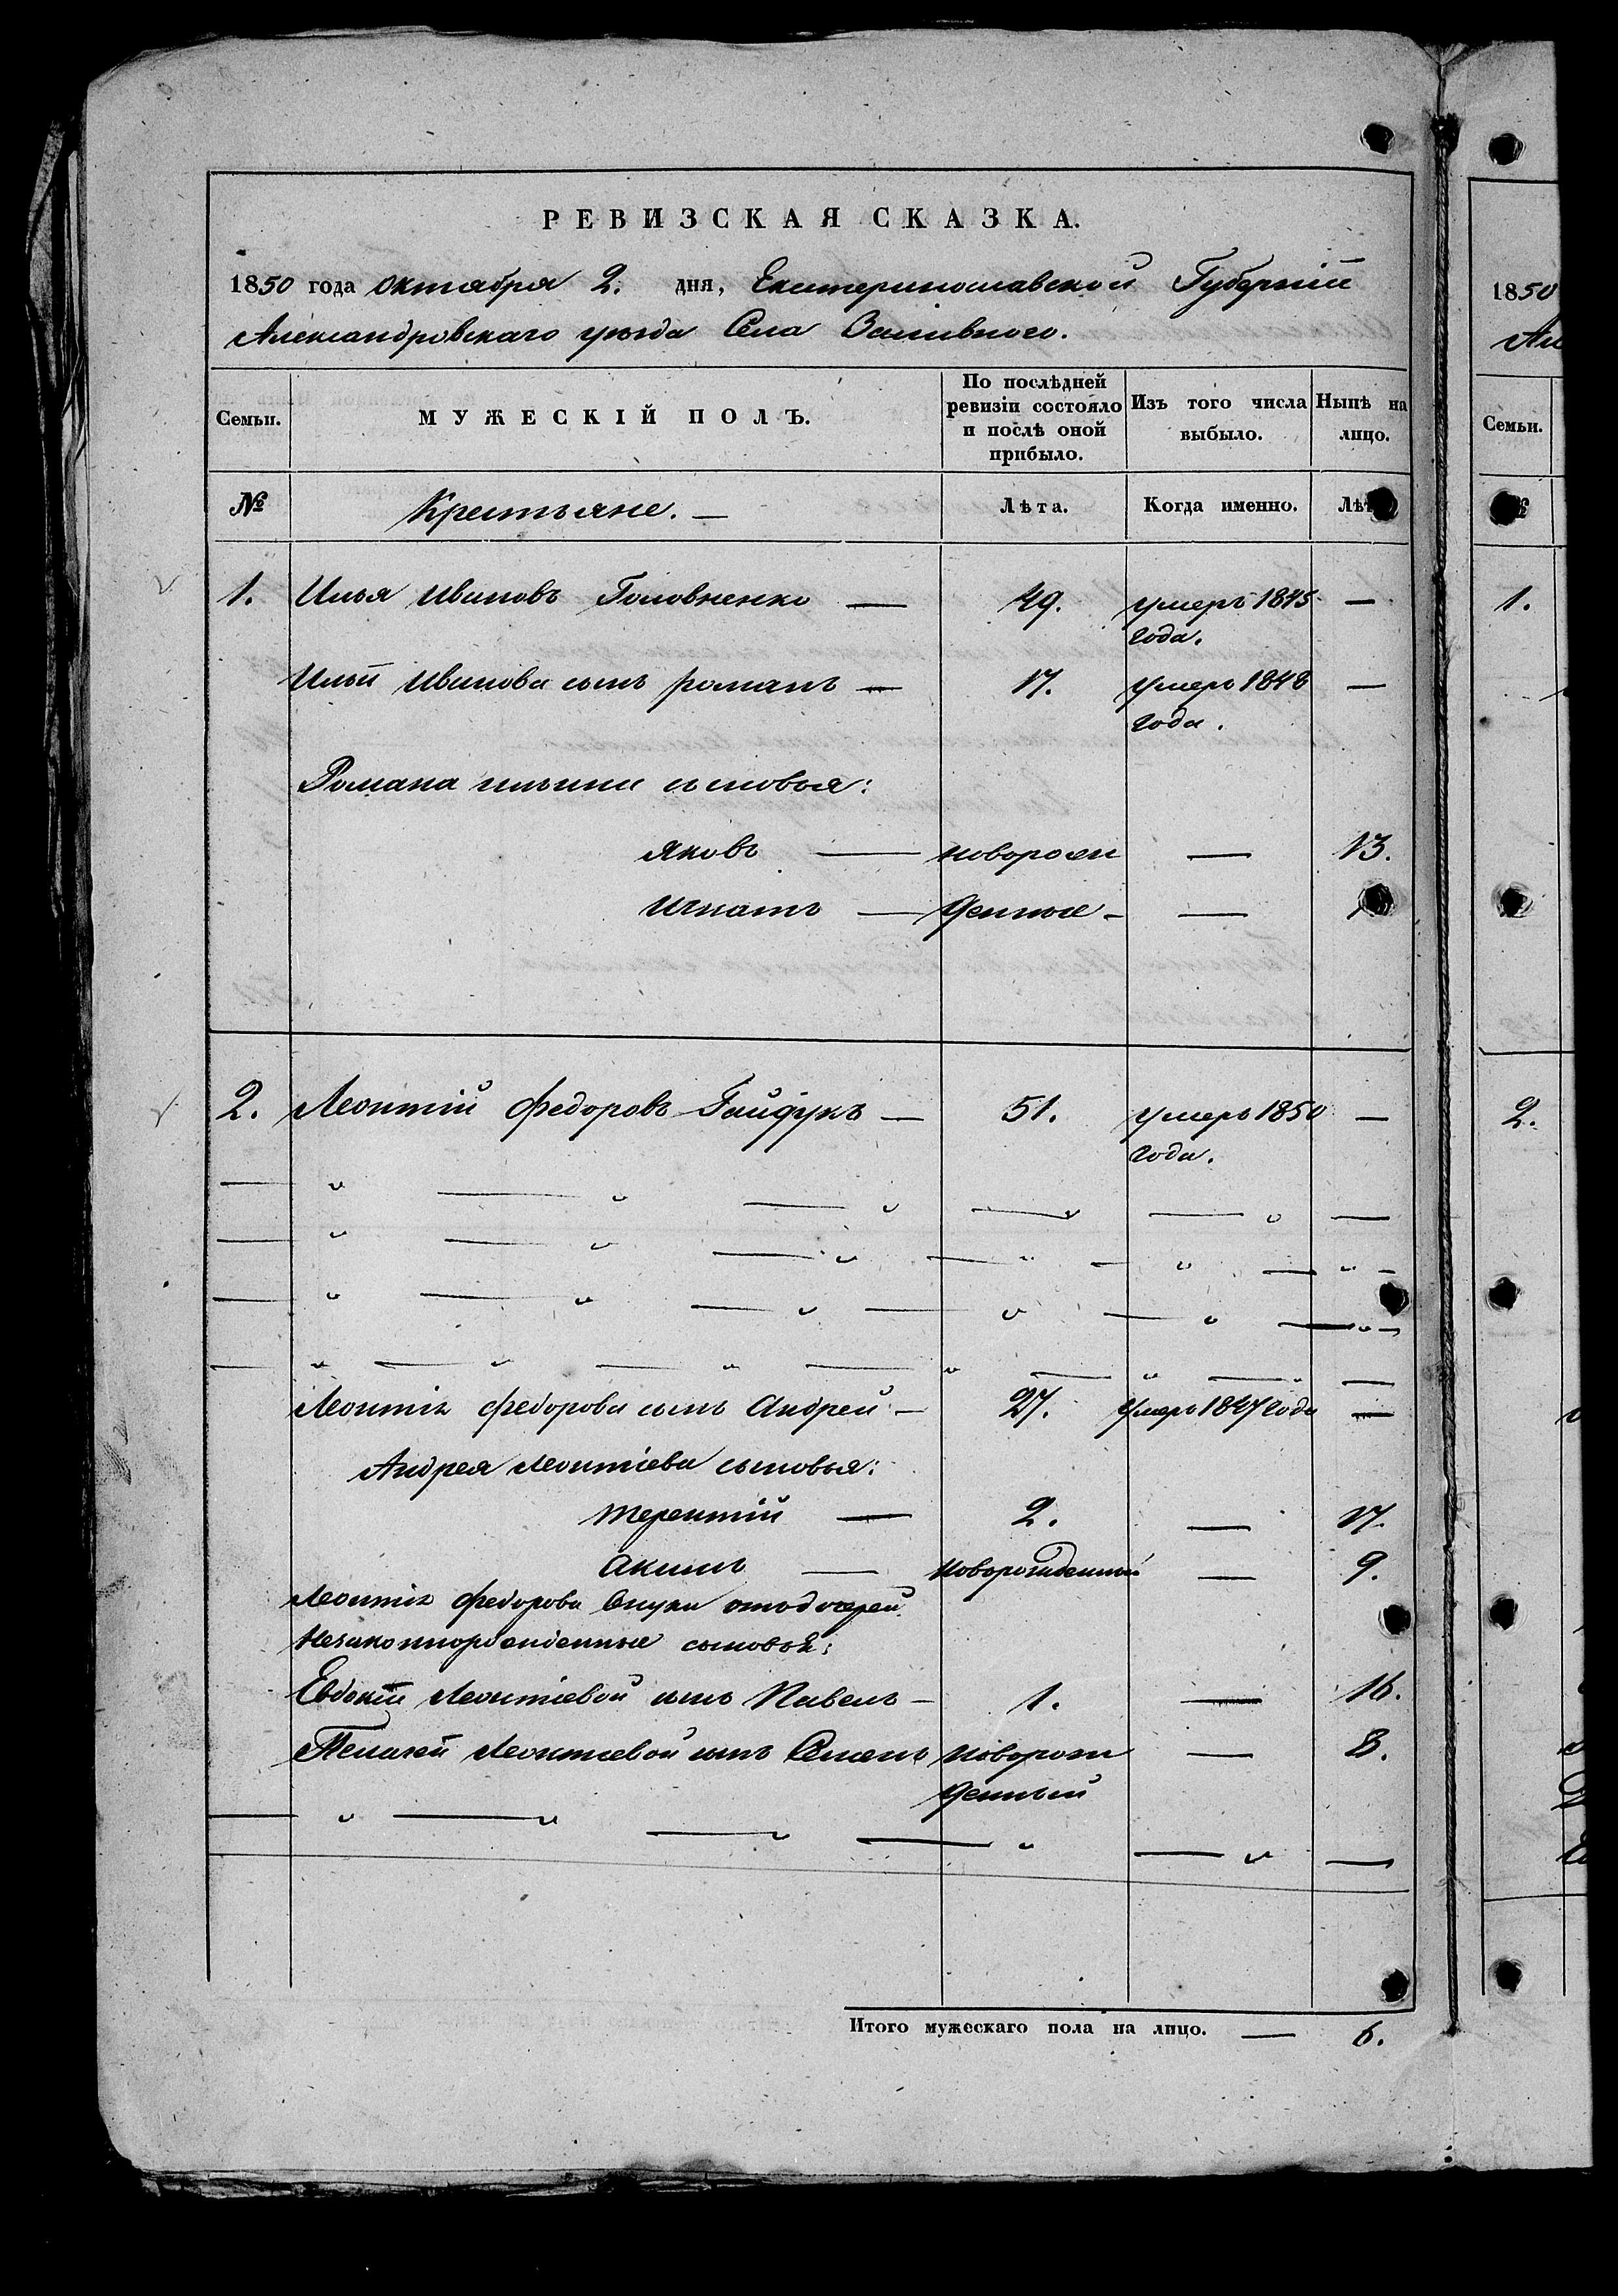 РЕВИЗСКАЯ СКАЗКА.
1850 года октября 2. дня, Екатеринославской Губерніи
Александровскаго уѣзда Села Заливного.
Семьи.
МУЖЕСКІЙ ПОЛЪ.
По послѣдней ревизіи состояло и послѣ оной прибыло.
Изъ того числа выбыло.
Нынѣ на лицо.
№ Крестьяне. — Лѣта. Когда именно.
1. Илья Ивановъ Головненко — 49. умеръ 1845 —
года.
Ильи Иванова сынъ романъ — 17. умеръ 1848 —
года.
Романа ильина сыновья:
яковъ — неворожен — 13.
Игнатъ — денные — —
2. Леонтій Федоровъ Гайдукъ — 51. умеръ 1850 —
года.
Леонтія федорова сынъ Андрей — 27. умеръ 1847 года —
Андрея Леонтіева сыновья:
терентій — 2. — 17.
акимъ — новорожденный — 9.
Леонтія федорова внуки отъ дочерей
незаконнорожденные сыновья:
Евдокіи Леонтіевой сынъ Павелъ — 1. — 16.
Пелагеи Леонтіевой сынъ Семенъ новорож — 8.
денный
Итого мужескаго пола на лицо. — 6.
1850
Ал
Семьи.
1.
2.